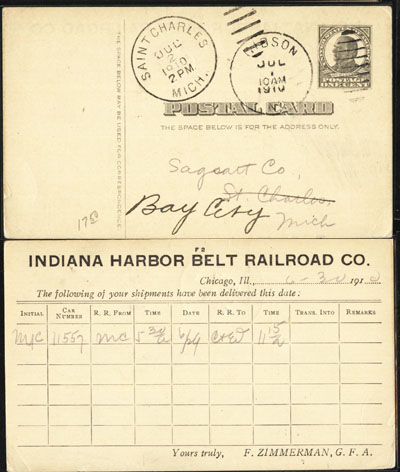 SAINT CHARLES
JUL
2
1910
2 PM
MICH.
GIBSON
JUL
1
10AM
1910
POSTAGE
ONE CENT
POSTAL CARD
THE SPACE BELOW IS FOR THE ADDRESS ONLY.
THE SPACE BELOW MAY BE USED FOR CORRESPONDENCE.
Co.
St. Charles
Bay City
Mich
F2
INDIANA HARBOR BELT RAILROAD CO.
Chicago, Ill., 6-30 1910
The following of your shipments have been delivered this date:
INITIAL CAR NUMBER R. R. FROM TIME DATE R. R. TO TIME TRANS. INTO REMARKS
MC 11557 MC 5 30 6/29 11 15
Yours truly, F. ZIMMERMAN, G. F. A.